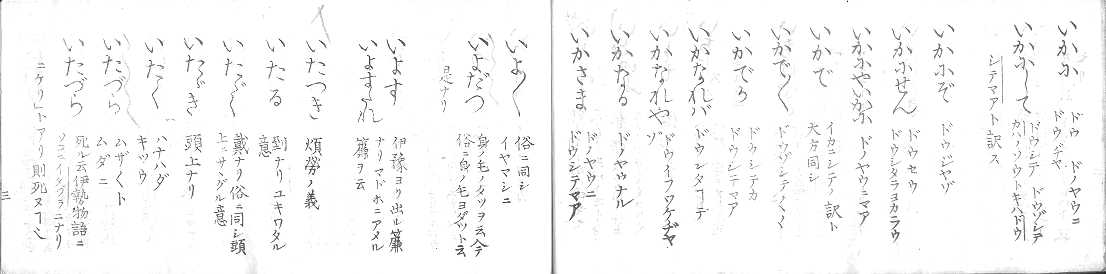 いかに　ドウ　ドノヤウニ
ドウヂヤ
いかにして　ドウシテ　ドウゾシテ
シテマアト訳ス
いかにぞ　ドウヂヤゾ
いかにせん　ドウセウ
ドウシタラヨカラウ
いかにやいかに　ドノヤウニマア
いかで　イカニシテノ訳ト
大方同シ
いかでいかで　ドウゾシテノ
いかでか　ドウシテカ
ドウシテマア
いかなれバ　ドウシタコトデ
いかなれや　ドウイフワケヂヤ
ゾ
いかなる　ドノヤウナル
いかさま　ドノヤウニ
ドウシテマア
いよ〱　俗ニ同シ
イヤマシニ
いよだつ　身ノ毛ノタツヲ云今
俗ニ身ノ毛ヨダツト云
是ナリ
いよす　伊豫ヨリ出ル簾
いよすだれ　ナリマドホニアメル
簾ヲ云
いたつき　煩労ノ義
いたる　到ナリユキワタル
意
いたゞく　戴ナリ俗ニ同シ頭
上ニサヽグル意
いたゞき　頭上ナリ
いたく　ハナハダ
キツウ
いたづら　ムザ〱ト
ムダニ
いたづら　死ルヲ云伊勢物語ニ
ソコニイタヅラニナリ
ニケリトアリ則死ヌコト也
三